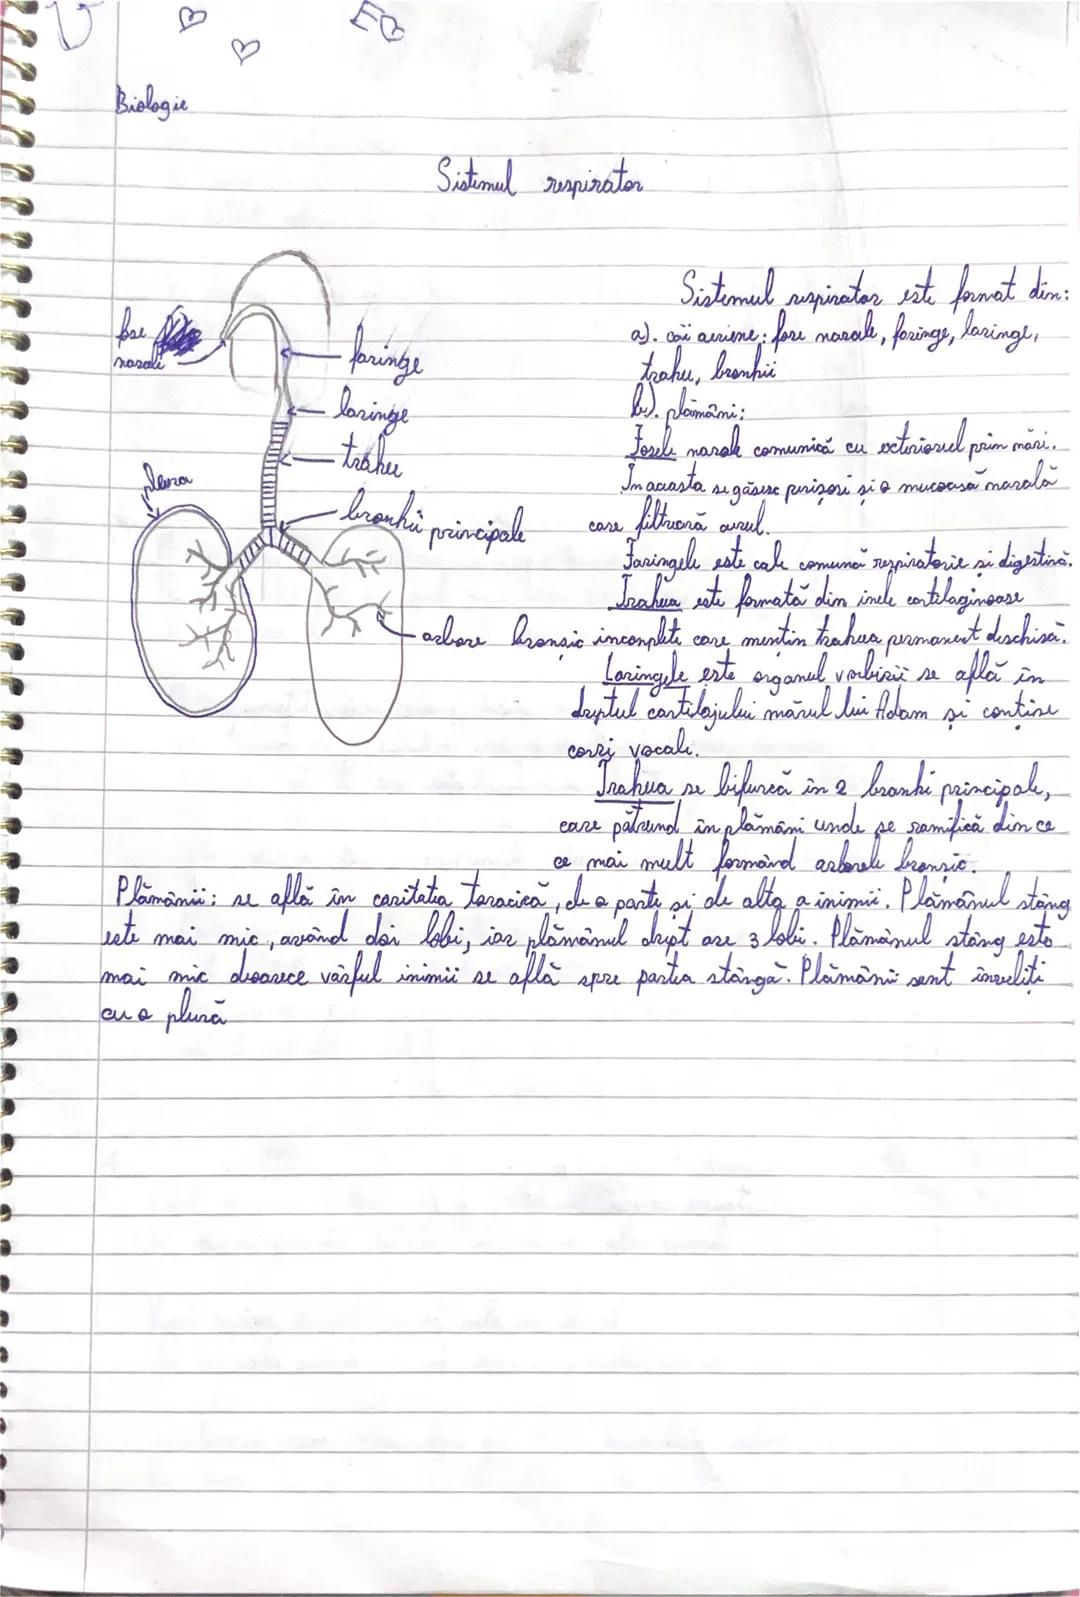 EB
Biologie
Sistemul respirator
fose
nazale
faringe
laringe
trahee
pleura
bronhii principale
arbore bronșic
Sistemul respirator este format din:
a). căi aeriene: fose nazale, faringe, laringe,
trahee, bronhii
b). plămâni:
Fosele nazale comunică cu exteriorul prin nări.
În aceasta se găsesc perișori și o mucoasă nazală
care filtrează aerul.
Faringele este cale comună respiratorie și digestivă.
Trahea este formată din inele cartilaginoase
incomplete care mențin trahea permanent deschisă.
Laringele este organul vorbirii se află în
dreptul cartilajului mărul lui Adam și conține
corzi vocale.
Trahea se bifurcă în 2 bronhi principale,
care pătrund în plămâni unde se ramifică din ce
ce mai mult formând arborele bronșic.
Plămânii: se află în cavitatea toracică, de o parte și de alta a inimii. Plămânul stâng
este mai mic, având doi lobi, iar plămânul drept are 3 lobi. Plămânul stâng este
mai mic deoarece vârful inimii se află spre partea stângă. Plămânii sent înveliți
cu o pleură